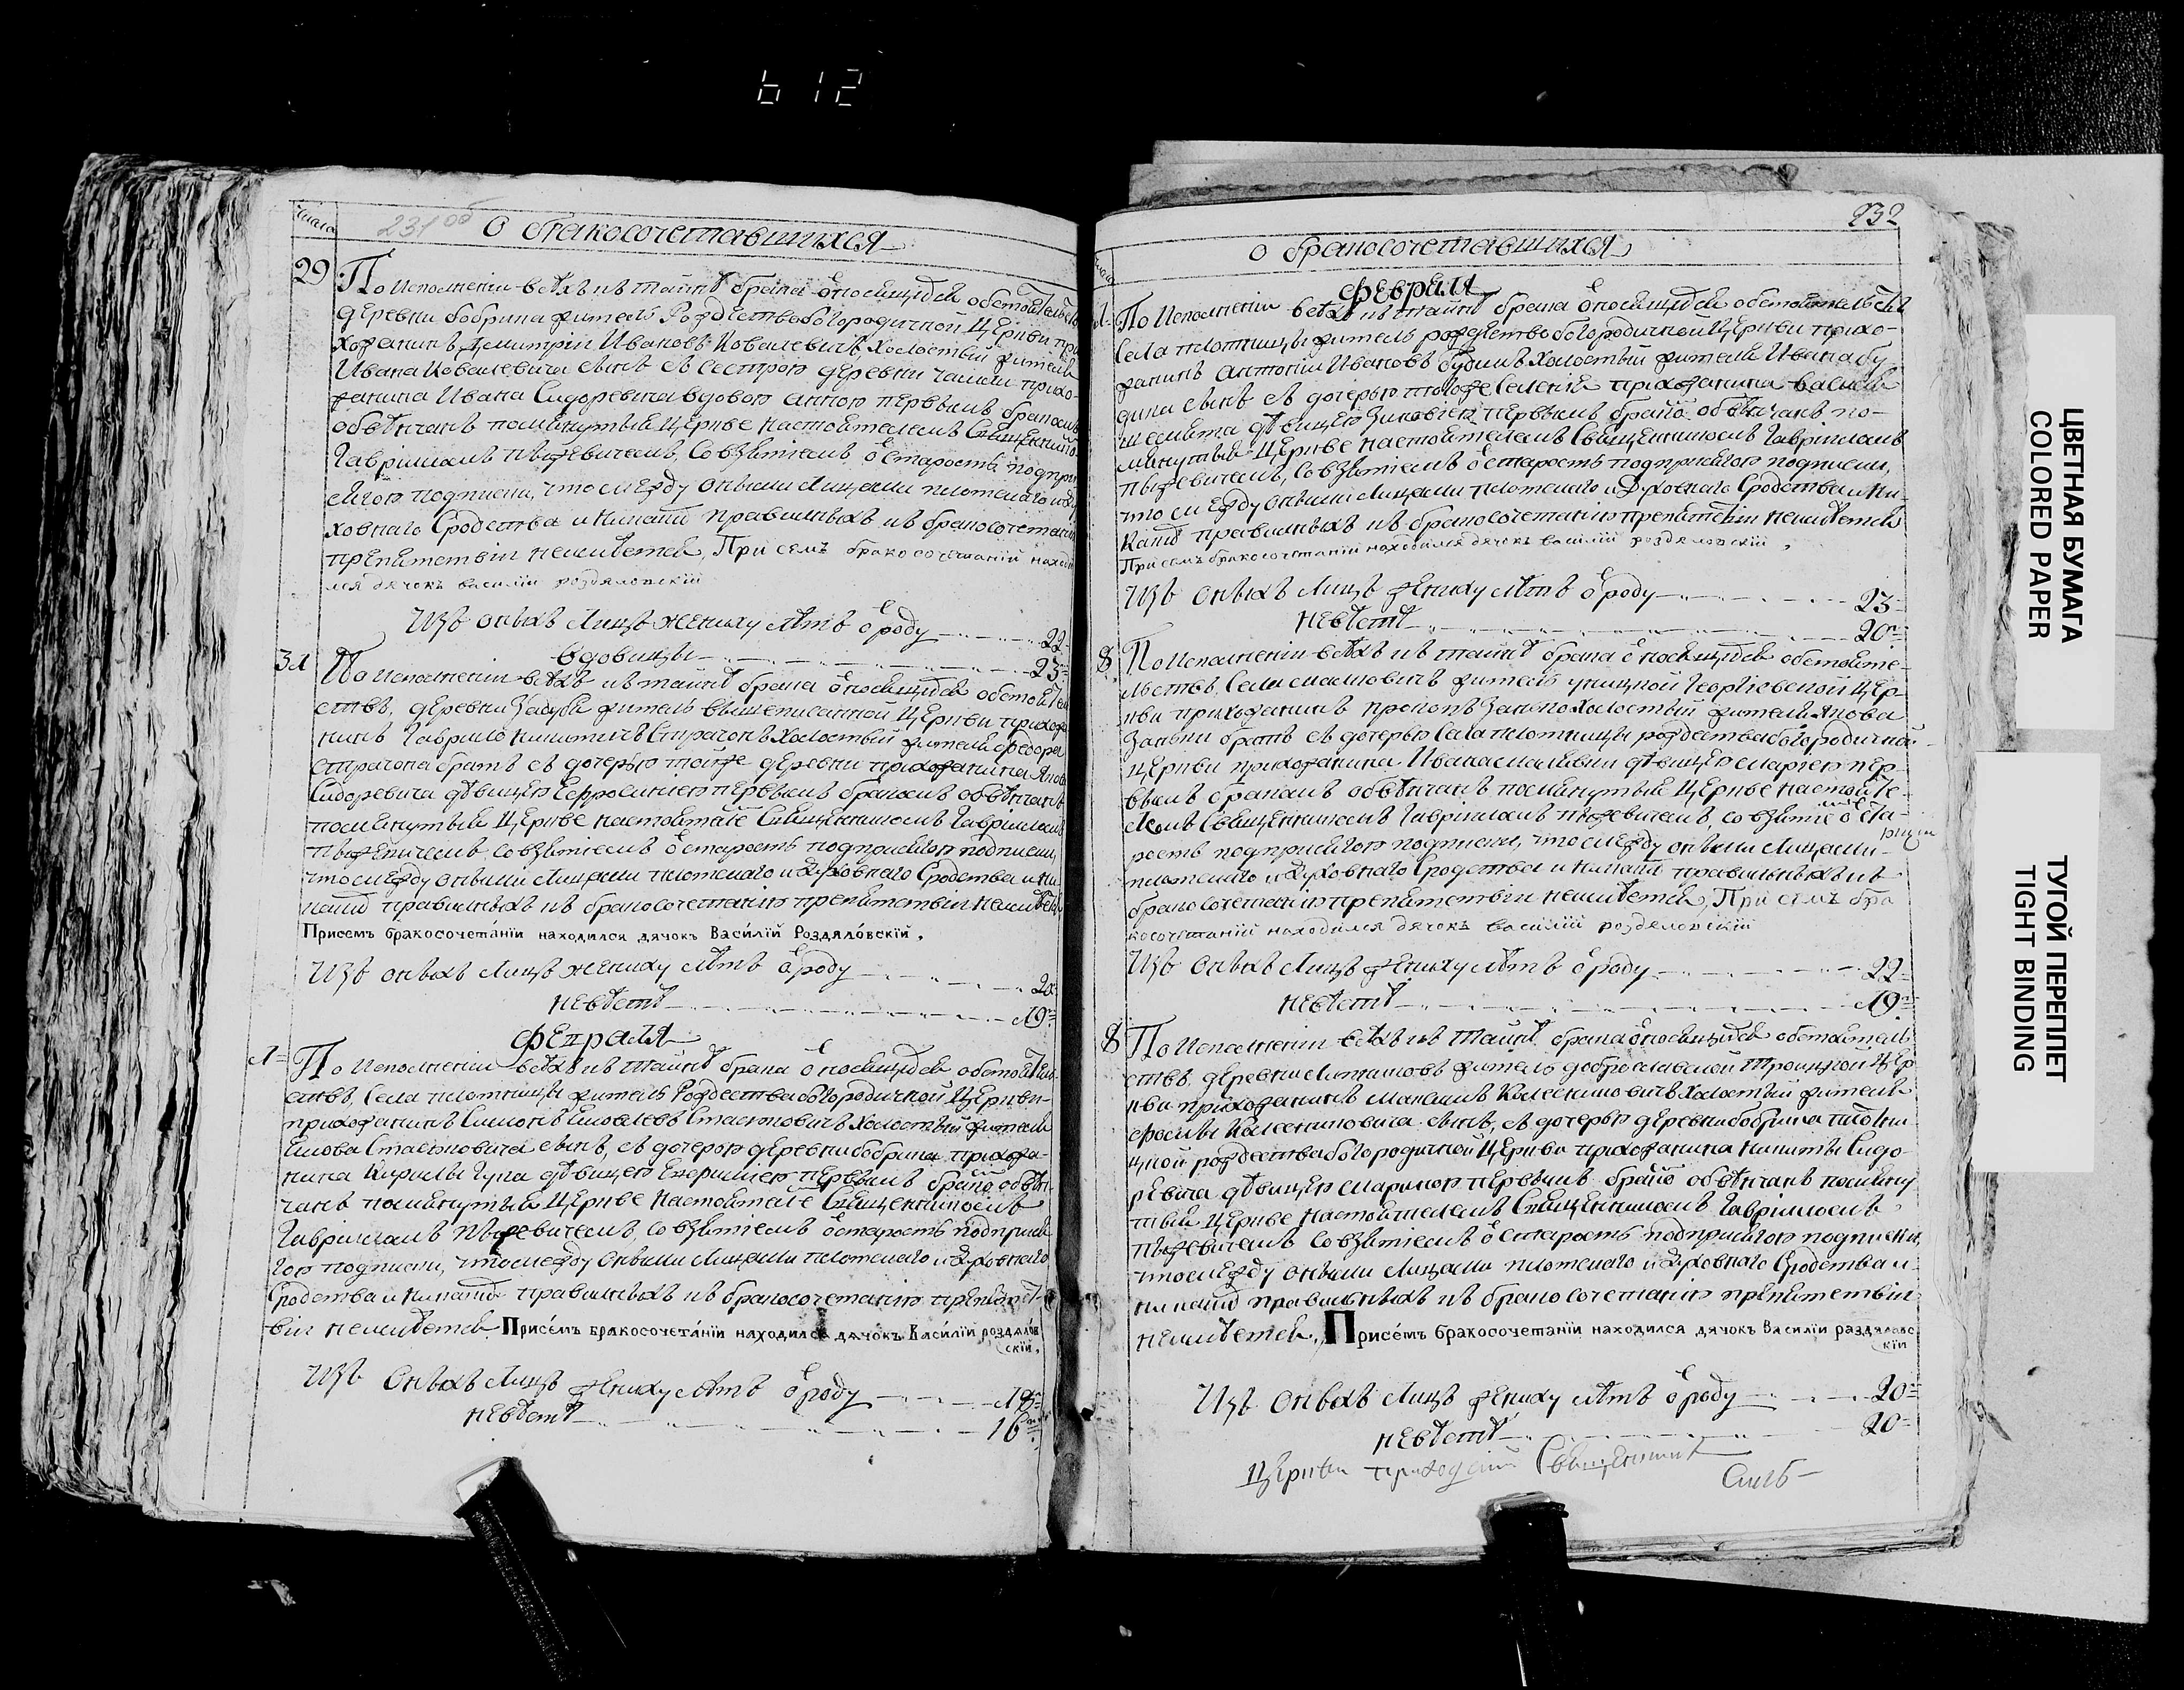 612
Числа
231об
О бракосочетавшихся
29
По Исполненіи всѣхъ къ тайнѣ брака ѿносящихся обстоятельствъ
деревни бобрика житель Рождествобогородичной Церкви при-
хожанинъ Димитрій Ивановъ Ковалевичъ, холостый жителя
Ивана Ковалевича сынъ съ сестрою деревни чамли прихо-
жанина Ивана Сидоревича вдовою Анною первымъ бракомъ
обвѣнчанъ помянутыя Церкве настоятелемъ Священникомъ
Гавріиломъ Пыжевичемъ, Со взятіемъ ѿ старостъ подпри-
сягою подписки, что между оными лицами плотскаго и ду-
ховнаго Сродства и никаких правильныхъ къ бракосочетанію
препятствіи неимѣется, При семъ бракосочетаніи находи-
лся дячокъ василіи роздяловскіи
Изъ оныхъ лицъ жениху лѣтъ ѿ роду 22
вдовицы 23
31
По исполненіи всѣхъ къ тайнѣ брака ѿносящихся обстоятель-
ствъ, деревни житель вышеписанной Церкви прихожа-
нинъ Гавріилъ Никитичъ Страчокъ Холостый жителя Федора
Страчока братъ съ дочерью тойже деревни прихожанина Якова
Сидоревича дѣвицею Ефросиніею первымъ бракомъ обвѣнчанъ
помянутыя Церкве настоятеле Священникомъ Гавріиломъ
Пыжевичемъ, со взятіемъ ѿ старостъ подприсягою подписки,
что между оными лицами плотскаго и духовнаго Сродства и ни-
каких правильныхъ къ бракосочетанію препятствіи неимѣется
Присемъ бракосочетаніи находился дячокъ Василій Роздяловскій.
Изъ оныхъ лицъ жениху лѣтъ ѿ роду 20
невѣстѣ 19
февраля
1
По исполненіи всѣхъ къ тайнѣ брака ѿносящихся обстоятель-
ствъ, Села плотницы житель Рождествабогородичной Церкви
прихожанинъ Симонъ Стасковичъ холостый жителя
Стасковича сынъ, съ дочерью деревни бобрика прихожа-
нина Кирилы дѣвицею первымъ брако обвѣн-
чанъ помянутыя Церкве настоятеле Священникомъ
Гавріиломъ Пыжевичемъ, со взятіемъ ѿ старостъ подприся-
гою подписки, что между оными лицами плотскаго и духовнаго
Сродства и никаких правильныхъ къ бракосочетанію препятст-
віи неимѣется Присемъ бракосочетаніи находился дячокъ Василіи роздялов
скіи.
Изъ оныхъ лицъ жениху лѣтъ ѿ роду 18
невѣстѣ 16
232
о бракосочетавшихся
февраля
1
По исполненіи всѣхъ къ тайнѣ брака ѿносящихся обстоятельствъ
Села плотницы житель рождествобогородичной Церкви прихо-
жанинъ Антоній Ивановъ будикъ холостый жителя Ивана бу
дика сынъ съ дочерью тогоже Селенія прихожанина
дѣвицею Зиновіею первымъ брако обвѣнчанъ по-
мянутыя Церкве настоятелемъ Священникомъ Гавріиломъ
Пыжевичемъ, Со взятіемъ ѿ старостъ подприсягою подписки,
что между оными лицами плотскаго и духовнаго Сродства и ни-
каких правильныхъ къ бракосочетанію препятствіи неимѣется
При семъ бракосочетаніи находился дячокъ василіи роздяловскіи.
Изъ оныхъ лицъ жениху лѣтъ ѿ роду 23
невѣстѣ 20
8
По исполненіи всѣхъ къ тайнѣ брака ѿносящихся обстояте-
льствъ, Села житель Георгіевской Цер-
кви прихожанинъ Прокопъ холостый жителя Якова
братъ съ дочерью Села плотницы рождествабогородичной
Церкви прихожанина Ивана дѣвицею Маріею пер-
вымъ бракомъ обвѣнчанъ помянутыя Церкве настояте-
лемъ Священникомъ Гавріиломъ Пыжевичемъ, со взятіе ѿ ста-
ростъ подприсягою подписки, что между оными лицами
плотскаго и духовнаго Сродства и никаких правильныхъ къ
бракосочетанію препятствіи неимѣется, При семъ бра
косочетаніи находился дячокъ василіи роздяловскіи
Изъ оныхъ лицъ жениху лѣтъ ѿ роду 22
невѣстѣ 19
8
По исполненіи всѣхъ къ тайнѣ брака ѿносящихся обстоятель
ствъ, деревни житель доброславской Троицкой Цер
кви прихожанинъ Максимъ холостый жителя
сынъ, съ дочерью деревни бобрика плотни
цкой рождествабогородичной Церкви прихожанина Никиты Сидо-
ревича дѣвицею Мариною первымъ брако обвѣнчанъ помяну
тыя Церкве настоятелемъ Священникомъ Гавріиломъ
Пыжевичемъ со взятіемъ ѿ старостъ подприсягою подписки,
что между оными лицами плотскаго и духовнаго Сродства и
никаких правильныхъ къ бракосочетанію препятствіи
неимѣется, Присемъ бракосочетаніи находился дячокъ Василіи раздяловс
кіи
Изъ оныхъ лицъ жениху лѣтъ ѿ роду 20
невѣстѣ 20
Церкви приходскій Священникъ
ЦВЕТНАЯ БУМАГА
COLORED PAPER
ТУГОЙ ПЕРЕПЛЕТ
TIGHT BINDING